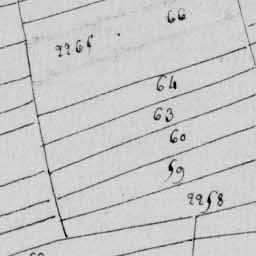 66
2265
64
63
60
59
2258